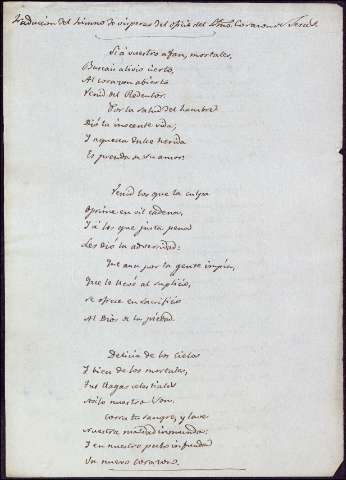 Traduccion del himno de visperas del oficio del Smo. Corazon de Jesus.
Si á vuestro afan, mortales,
Buscais alivio cierto,
Al corazon abierto
Venid del Redentor.
Por la salud del hombre
Dió la inocente vida;
Y aquesa dulce herida
Es prenda de su amor.
Venid los que la culpa
Oprime en vil cadena,
Y á los que justa pena
Les dió la adversidad:
Que aun por la gente impía,
Que lo llevó al suplicio,
se ofrece en sacrificio
Al Dios de la piedad.
Delicia de los cielos
Y bien de los mortales,
Tus llagas celestiales
Asilo nuestro son.
Corra tu sangre, y lave
Nuestra maldad inmunda:
Y en nuestro pecho infunda
Un nuevo corazon.